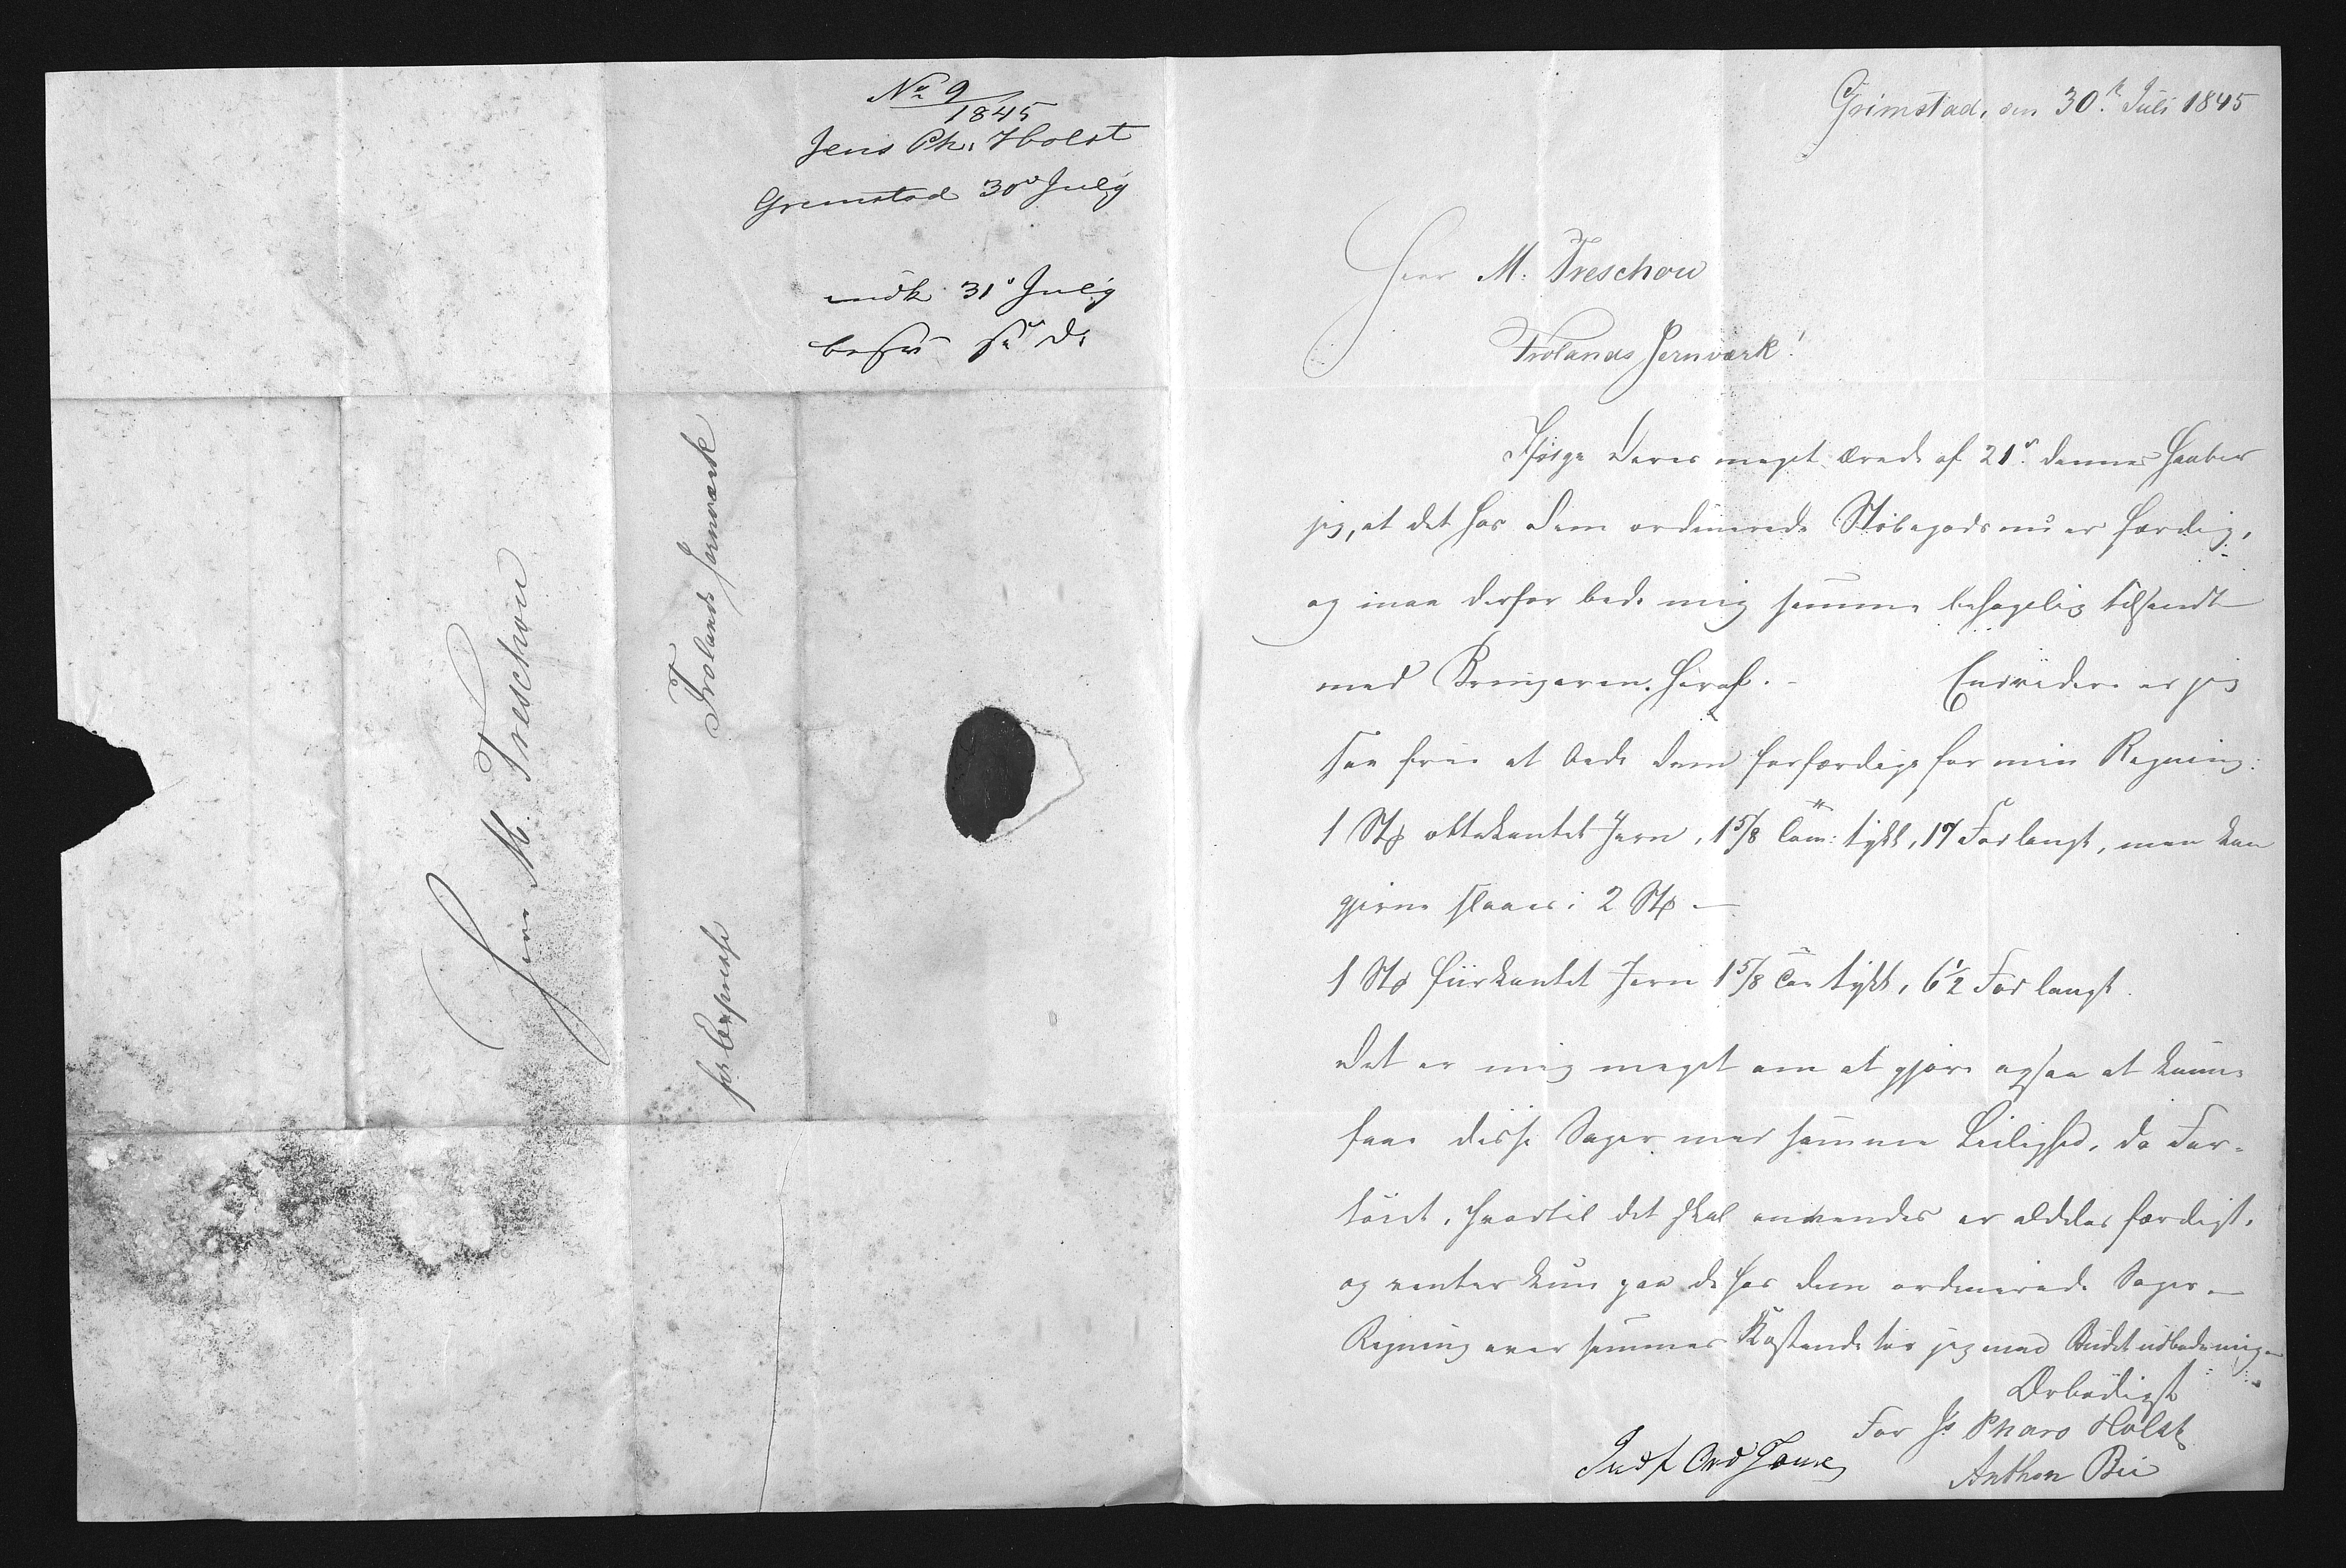 No 9
1845
Jens Ph. Holst
Grimstad 30te July
indk 31te July
besv s. D.
Herr M. Treschow
Frolands Jernværk
pr Expresse
Grimstad, den 30te Juli 1845
Herr M. Treschow
Frolands Jernværk!
Ifølge Deres meget ærede af 21de dennes haaber
jeg, at det hos Dem ordinerede Støbegods nu er færdig,
og maa derfor bede mig samme behagelig tilsendt
med Bringeren heraf. – Endvidere er jeg
saa frie at bede Dem forfærdige for min Regning:
1 Stk ottekantet Jern, 1 5/8 Tom: tykt, 17 Fod langt, men kan
gjerne slaaes i 2 Stk –
1 Stk firkantet Jern 1 5/8 Tom tykt, 6 1/2 Fod langt.
Det er mig meget om at gjøre ogsaa at kunne
faae disse Sager med samme Leilighed, da Far-
tøiet, hvortil det skal anvendes er aldeles færdigt,
og venter kun paa de hos Dem ordinerede Sager. –
Regning over sammes Kostende tør jeg med Budet udbede mig. –
Ærbødigst
For Js Pharo Holst
Anthon Bie